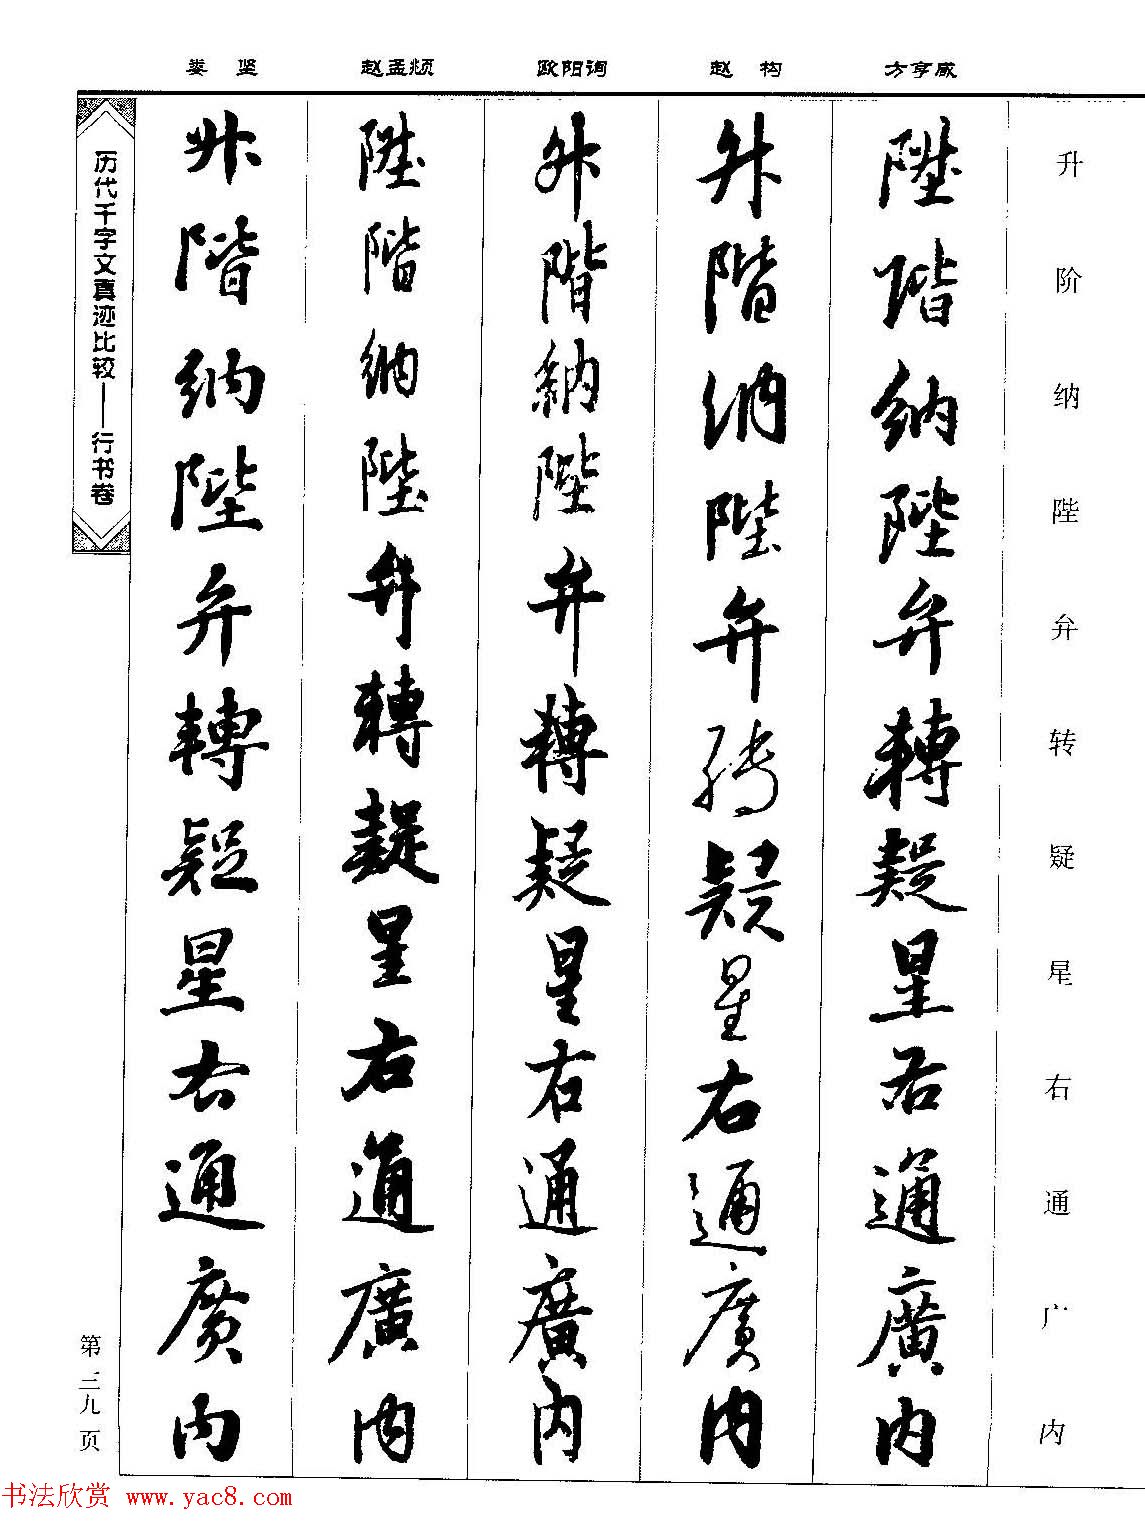 娄 坚 赵孟頫 欧阳询 赵 构 方亨咸
升阶纳陛弁转疑星右通广内
陞階納陛弁轉疑星右通廣内
升階納陛弁轉疑星右通廣内
升階納陛弁轉疑星右通廣内
陞階納陛弁轉疑星右通廣内
升階納陛弁轉疑星右通廣内
历代千字文真迹比较——行书卷
第三九页
书法欣赏 www.yac8.com